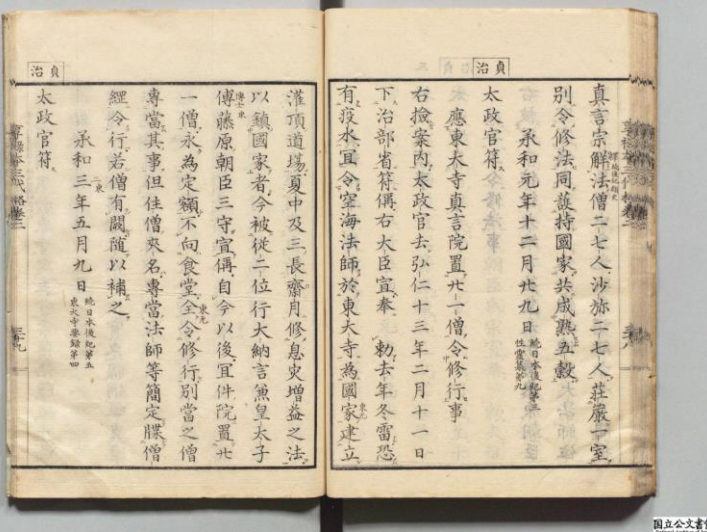 貞治
真言宗解法僧二七人沙弥二七人荘嚴一室
別令修法同護持國家共成熟五穀
承和元年十二月廿九日 續日本後紀第三 性霊集第九
太政官符
應東大寺真言院置廿一僧令修行事
右撿案内太政官去弘仁十三年二月十一日
下治部省符偁右大臣宣奉 勅去年冬雷恐
有疫水宜令空海法師於東大寺為國家建立
灌頂道場夏中及三長齋月修息災増益之法
以鎮國家者今被従二位行大納言兼皇太子
傅藤原朝臣三守宣偁自今以後宜件院置廿
一僧永為定額不向食堂全令修行別當之僧
專當其事但住僧夾名專當法師等簡定牒僧
綱令行若僧有闕随以補之
承和三年五月九日 續日本後紀第五 東大寺要録第四
太政官符
貞治
国立公文書